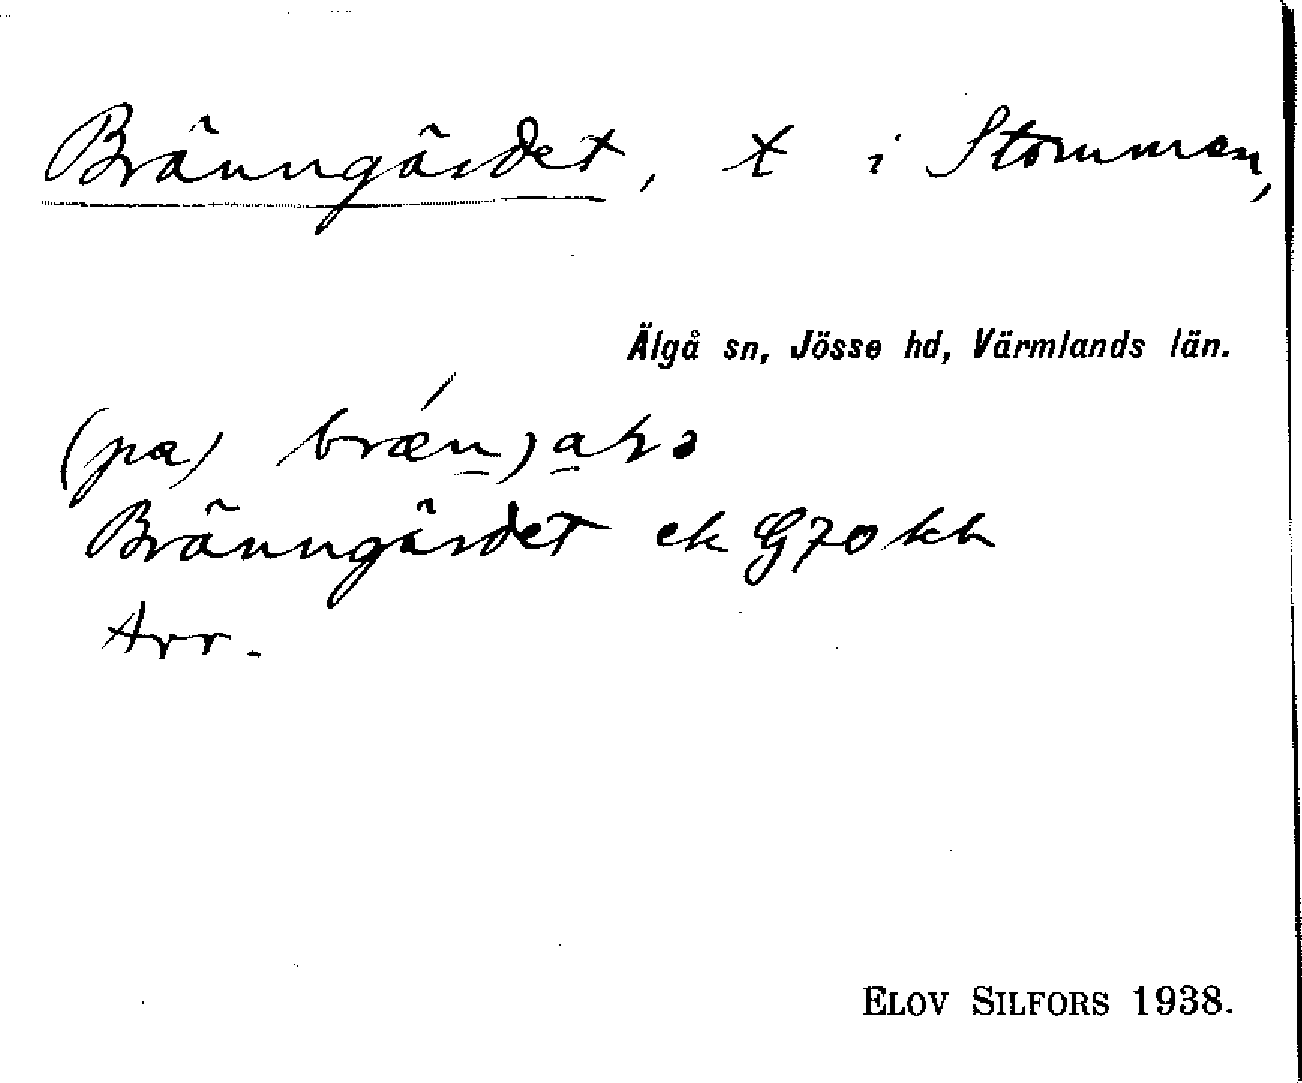 Bränngärdet, t i Stommen,
Älgå sn, Jösse hd, Värmlands län.
(pa)
Bränngärdet ek G70 kb
Arr.
ELOV SILFORS 1938.